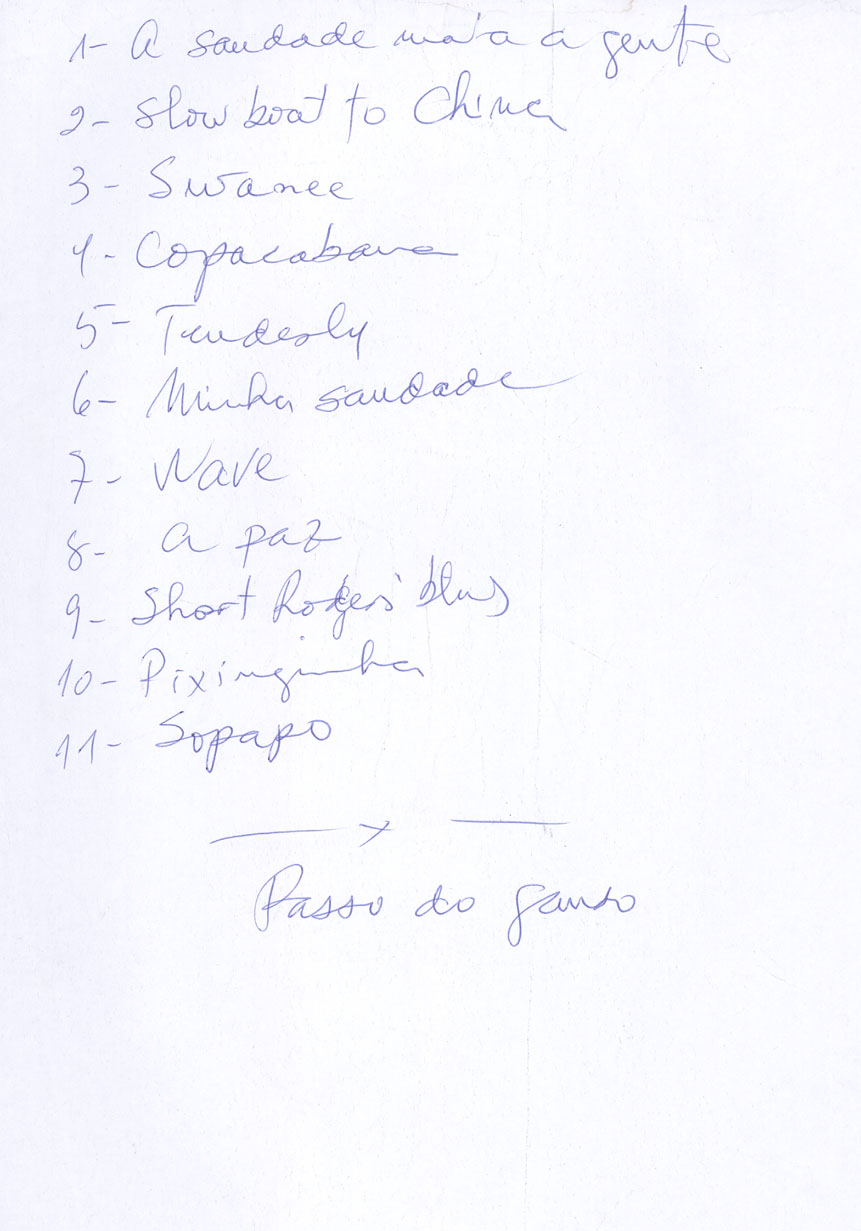 1- A saudade mata a gente
2- Slow boat to China
3- Swanee
4- Copacabana
5- Tenderly
6- Minha saudade
7- Wave
8- A paz
9- Short Rogers' blues
10- Pixinguinha
11- Sopapo
Passo do ganso